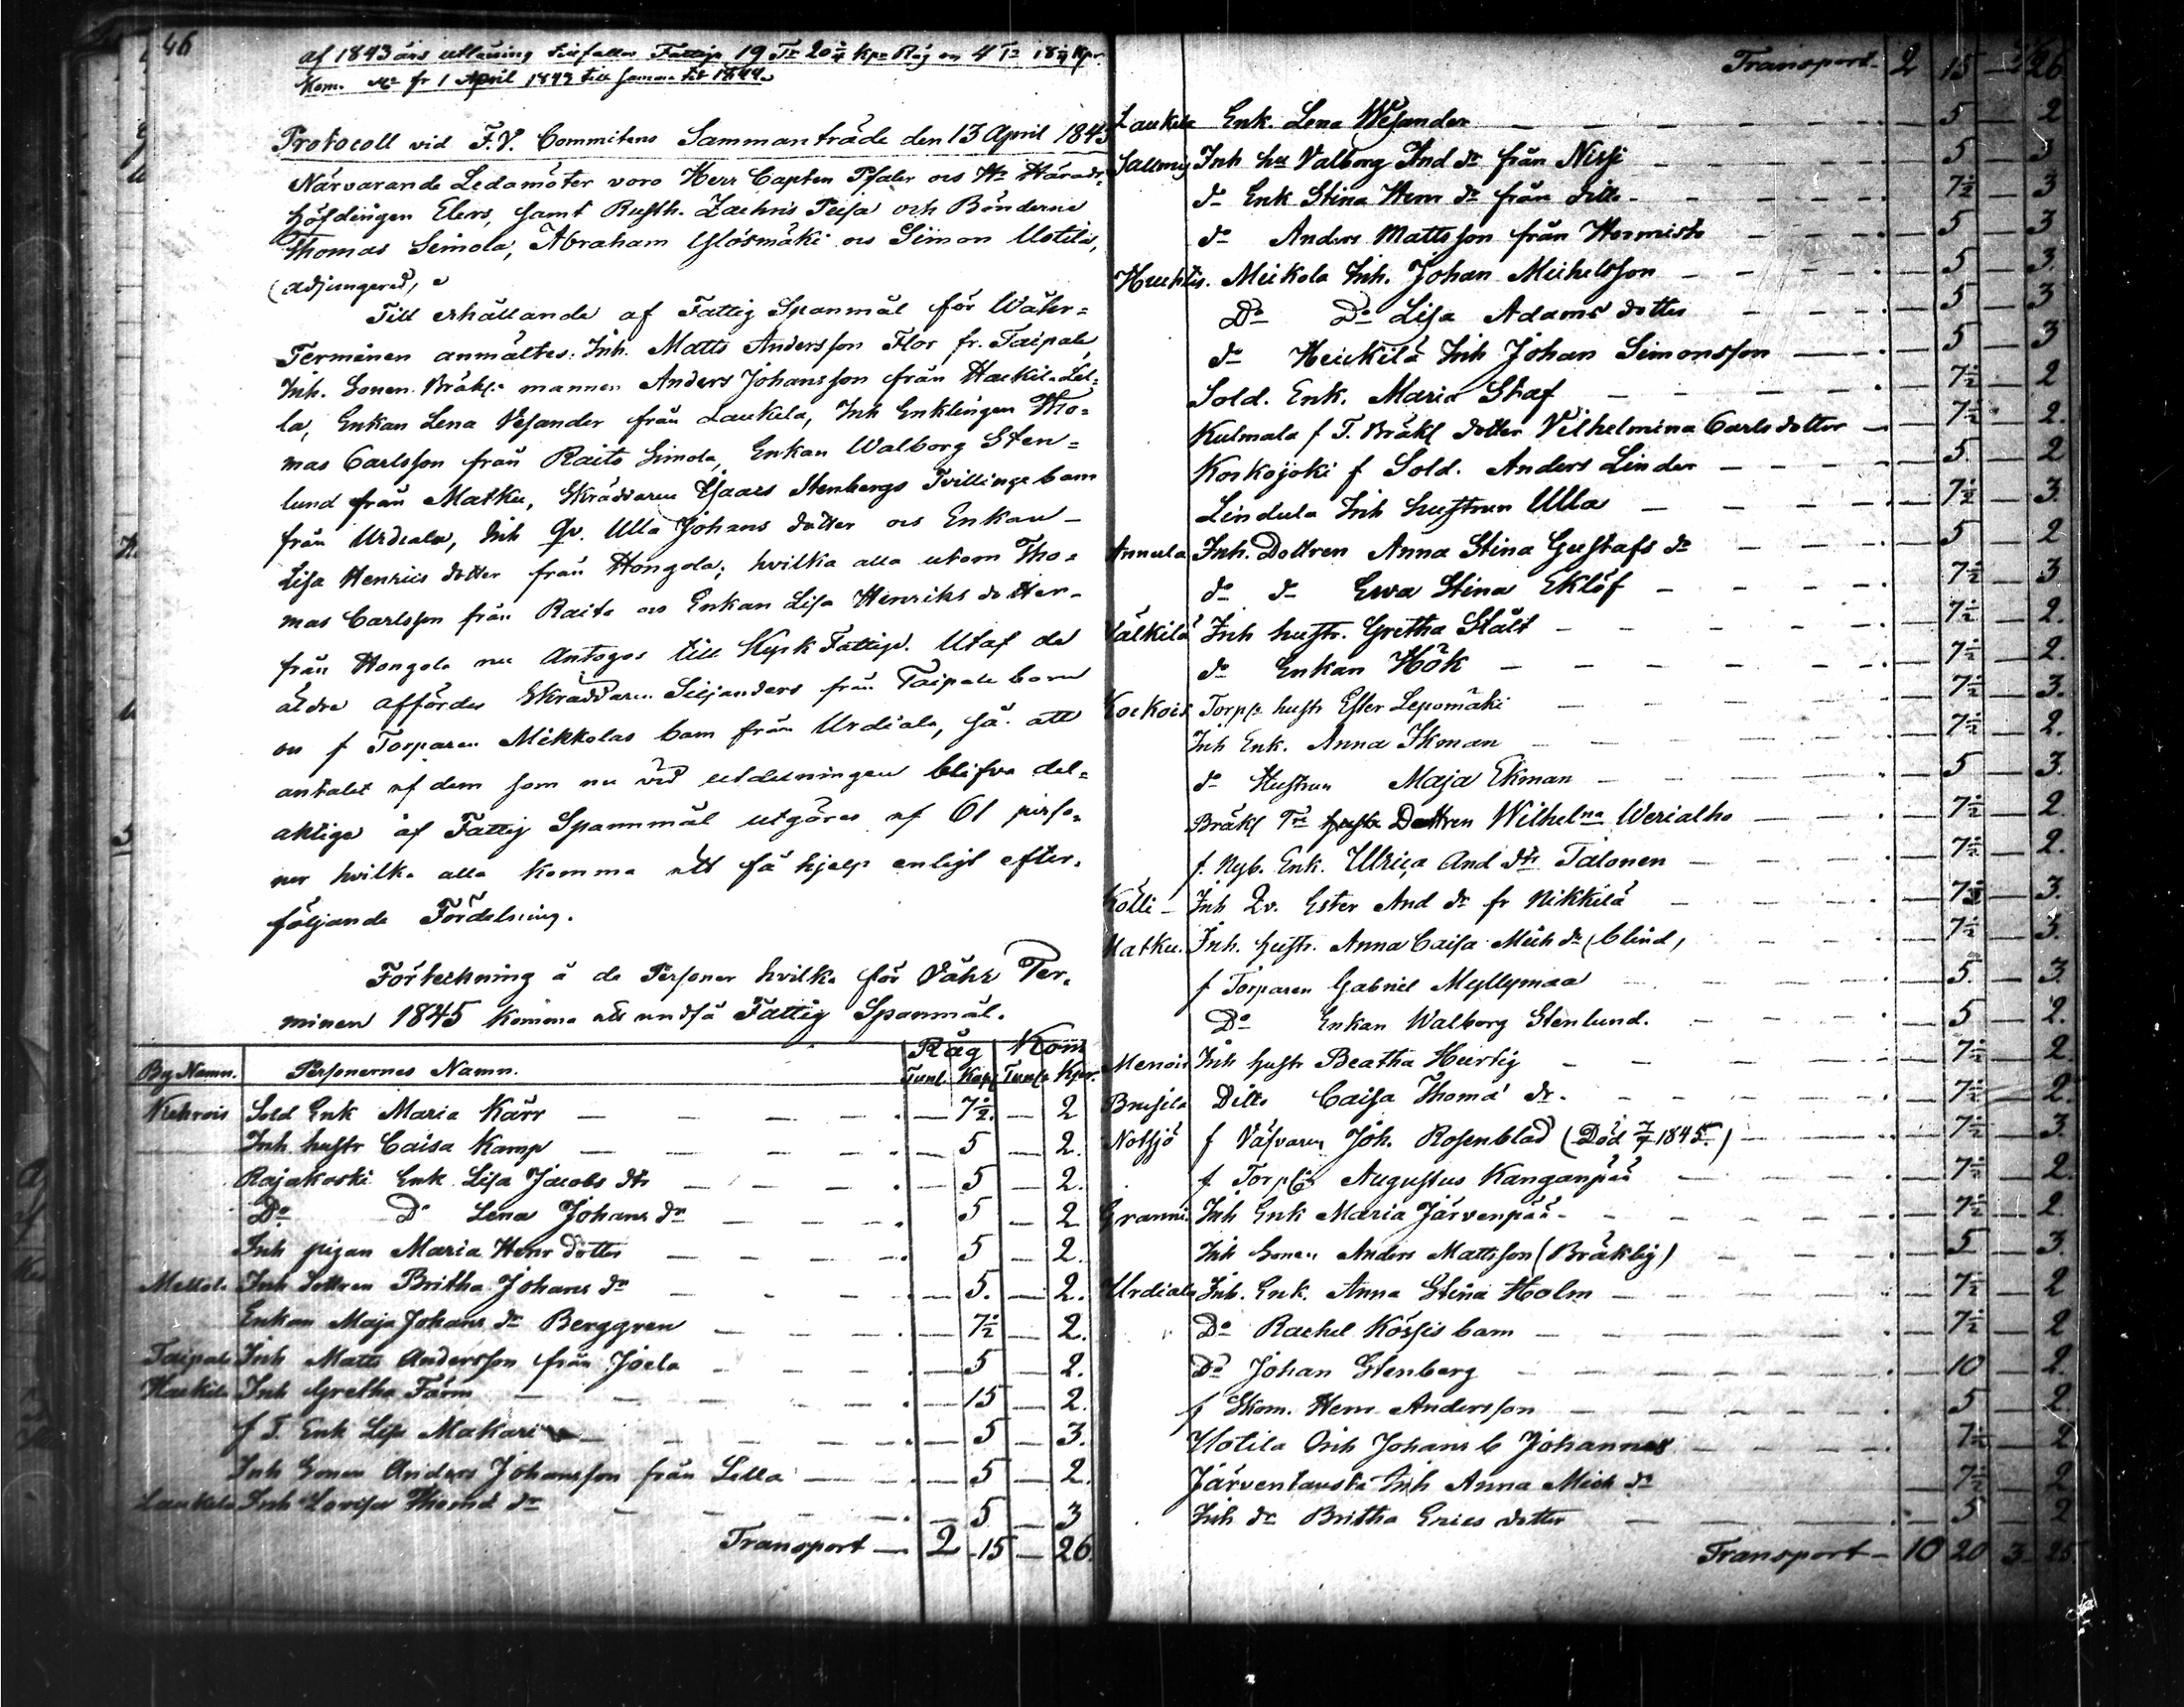 46
af 1843 års utlåning tillfaller Fattige 19 Tr 20 kpr Råg 4 Tr
Korn fr 1 April 1843 till samma tid 1844.
Protocoll vid F.V. Commitens Sammanträde den 13 April 1845
Närvarande Ledamöter voro Herr Capten Pfaler Hr Härads-
höfdingen Elers, samt Rusth. Zachris och Bönderne
Thomas Simola, Abraham Ylösmäki Simon Uotila,
(adjungerad,
Till erhållande af Fattig Spanmål för Wåhr=
Terminen anmältes: Inh. Matts Andersson Flor fr. Taipale,
Inh. Sonen Bråkl. mannen Anders Johansson från Hackila Lel=
la, Enkan Lena Vesander från Laukela, Inh Enklingen Tho=
mas Carlsson från Raito Simola, Enkan Walborg Sten=
lund från Matku, Skräddaren Isaacs Stenbergs Tvillinge barn
från Urdiala, Inh Qv. Ulla Johans dotter Enkan
Lisa Henrics dotter från Hongola; hvilka alla utom Tho=
mas Carlsson från Raito Enkan Lisa Henriks dotter
från Hongola nu Antogos till Kyrk Fattige. Utaf de
äldre affördes Skräddaren Siljanders från Taipale barn
f Torparen Mikkolas barn från Urdiala, så att
antalet af dem som nu vid utdelningen blifva del=
aktige af Fattig Spanmål utgöres af 61 perso=
ner hvilka alla komma att få hjelp enligt efter=
följande Fördelning.
Förteckning å de Personer hvilka för Våhr Ter=
minen 1845 komma att undfå Fattig Spanmål.
Råg Korn
By Namn. Personernes Namn. Tunl. Kapl Tunl. Kpr.
Sold Enk Maria Kärr — 7½ — 2
Inh hustr Caisa Kamp — 5 — 2.
Rajakoski Enk Lisa Jacobs dtr — 5 — 2.
Do Do Lena Johans dr — 5 — 2
Inh pigan Maria Henr dotter — 5 — 2.
Inh Dottren Britha Johans dr — 5. — 2.
Enkan Maja Johans dr Berggren — 7½ — 2.
Taipale Inh Matts Andersson från Joela — 5 — 2.
Hackila Inh Gretha Färm — 15 — 2.
f T. Enk Lisa Makari — 5 — 3.
Inh Sonen Anders Johansson från Lella — 5 — 2.
Laukela Inh Lovisa Thoma dr — 5 — 3
Transport — 2 15 — 26.
Transport — 2 15 — 26
Laukela Enk. Lena Wesander — 5 — 2
Inh hu Valborg And dr från — 5 — 3
do Enk Stina Henr dr från ditto — 7½ — 3
do Anders Mattsson från — 5 — 3
Mickola Inh. Johan Michelsson — 5 — 3.
Do Do Lisa Adams dotter — 5 — 3
do Heickilä Inh Johan Simonsson — 5 — 3
Sold. Enk. Maria Skaf — 7½ — 2
Kulmala f T. Bräkl dotter Vilhelmina Carls dotter — 7½ — 2.
Koskojoki f Sold. Anders Linder — 5 — 2
Lindula Inh hustrun Ulla — 7½ — 3.
Annula Inh. Dottren Anna Stina Gustafs dr — 5 — 2
do do Ewa Stina Eklöf — 7½ — 3
Välkilä Inh hustr. Gretha Stålt — 7½ — 2.
do Enkan Hök — 7½ — 2.
Torp hustr Ester Lepomäki — 7½ — 3.
Inh Enk. Anna Ikman — 7½ — 2.
do Hustrun Maja Ekman — 5 — 3.
Bräkl Dottren Wilhelna Werialho — 7½ — 2.
f. Nyb. Enk. Ulrica And dtr Talonen — 7½ — 2.
Kölli Inh Qv. Ester And dr fr Nikkilä — 7½ — 3.
Matku. Inh. hustr. Anna Caisa Mich dr (blind) — 7½ — 3.
f Torparen Gabriel Myllymaa — 5. — 3.
Do Enkan Walborg Stenlund. — 5 — 2.
Menois Inh hustr Beatha Hurtig — 7½ — 2.
Ditto Caisa Thoma dr. — 7½ — 2.
Notsjö f Väfvaren Joh. Rosenblad (Död 1845.) — 7½ — 3.
f Torp Augustus Kanganpää — 7½ — 2.
Inh Enk Maria Järvenpää — 7½ — 2
Inh Sonen Anders Mattsson (Bräklig) — 5 — 3.
Urdiala Inh. Enk. Anna Stina Holm — 7½ — 2
Do Rachel Kössis barn — 7½ — 2
Do Johan Stenberg — 10 — 2.
f Skom. Henr Andersson — 5 — 2.
Uotila Inh Johans b Johannes — 7½ — 2
Järventausta Inh Anna Mich dr — 7½ — 2
Inh dr Britha Erics dotter — 5 — 2
Transport — 10 20 3 25